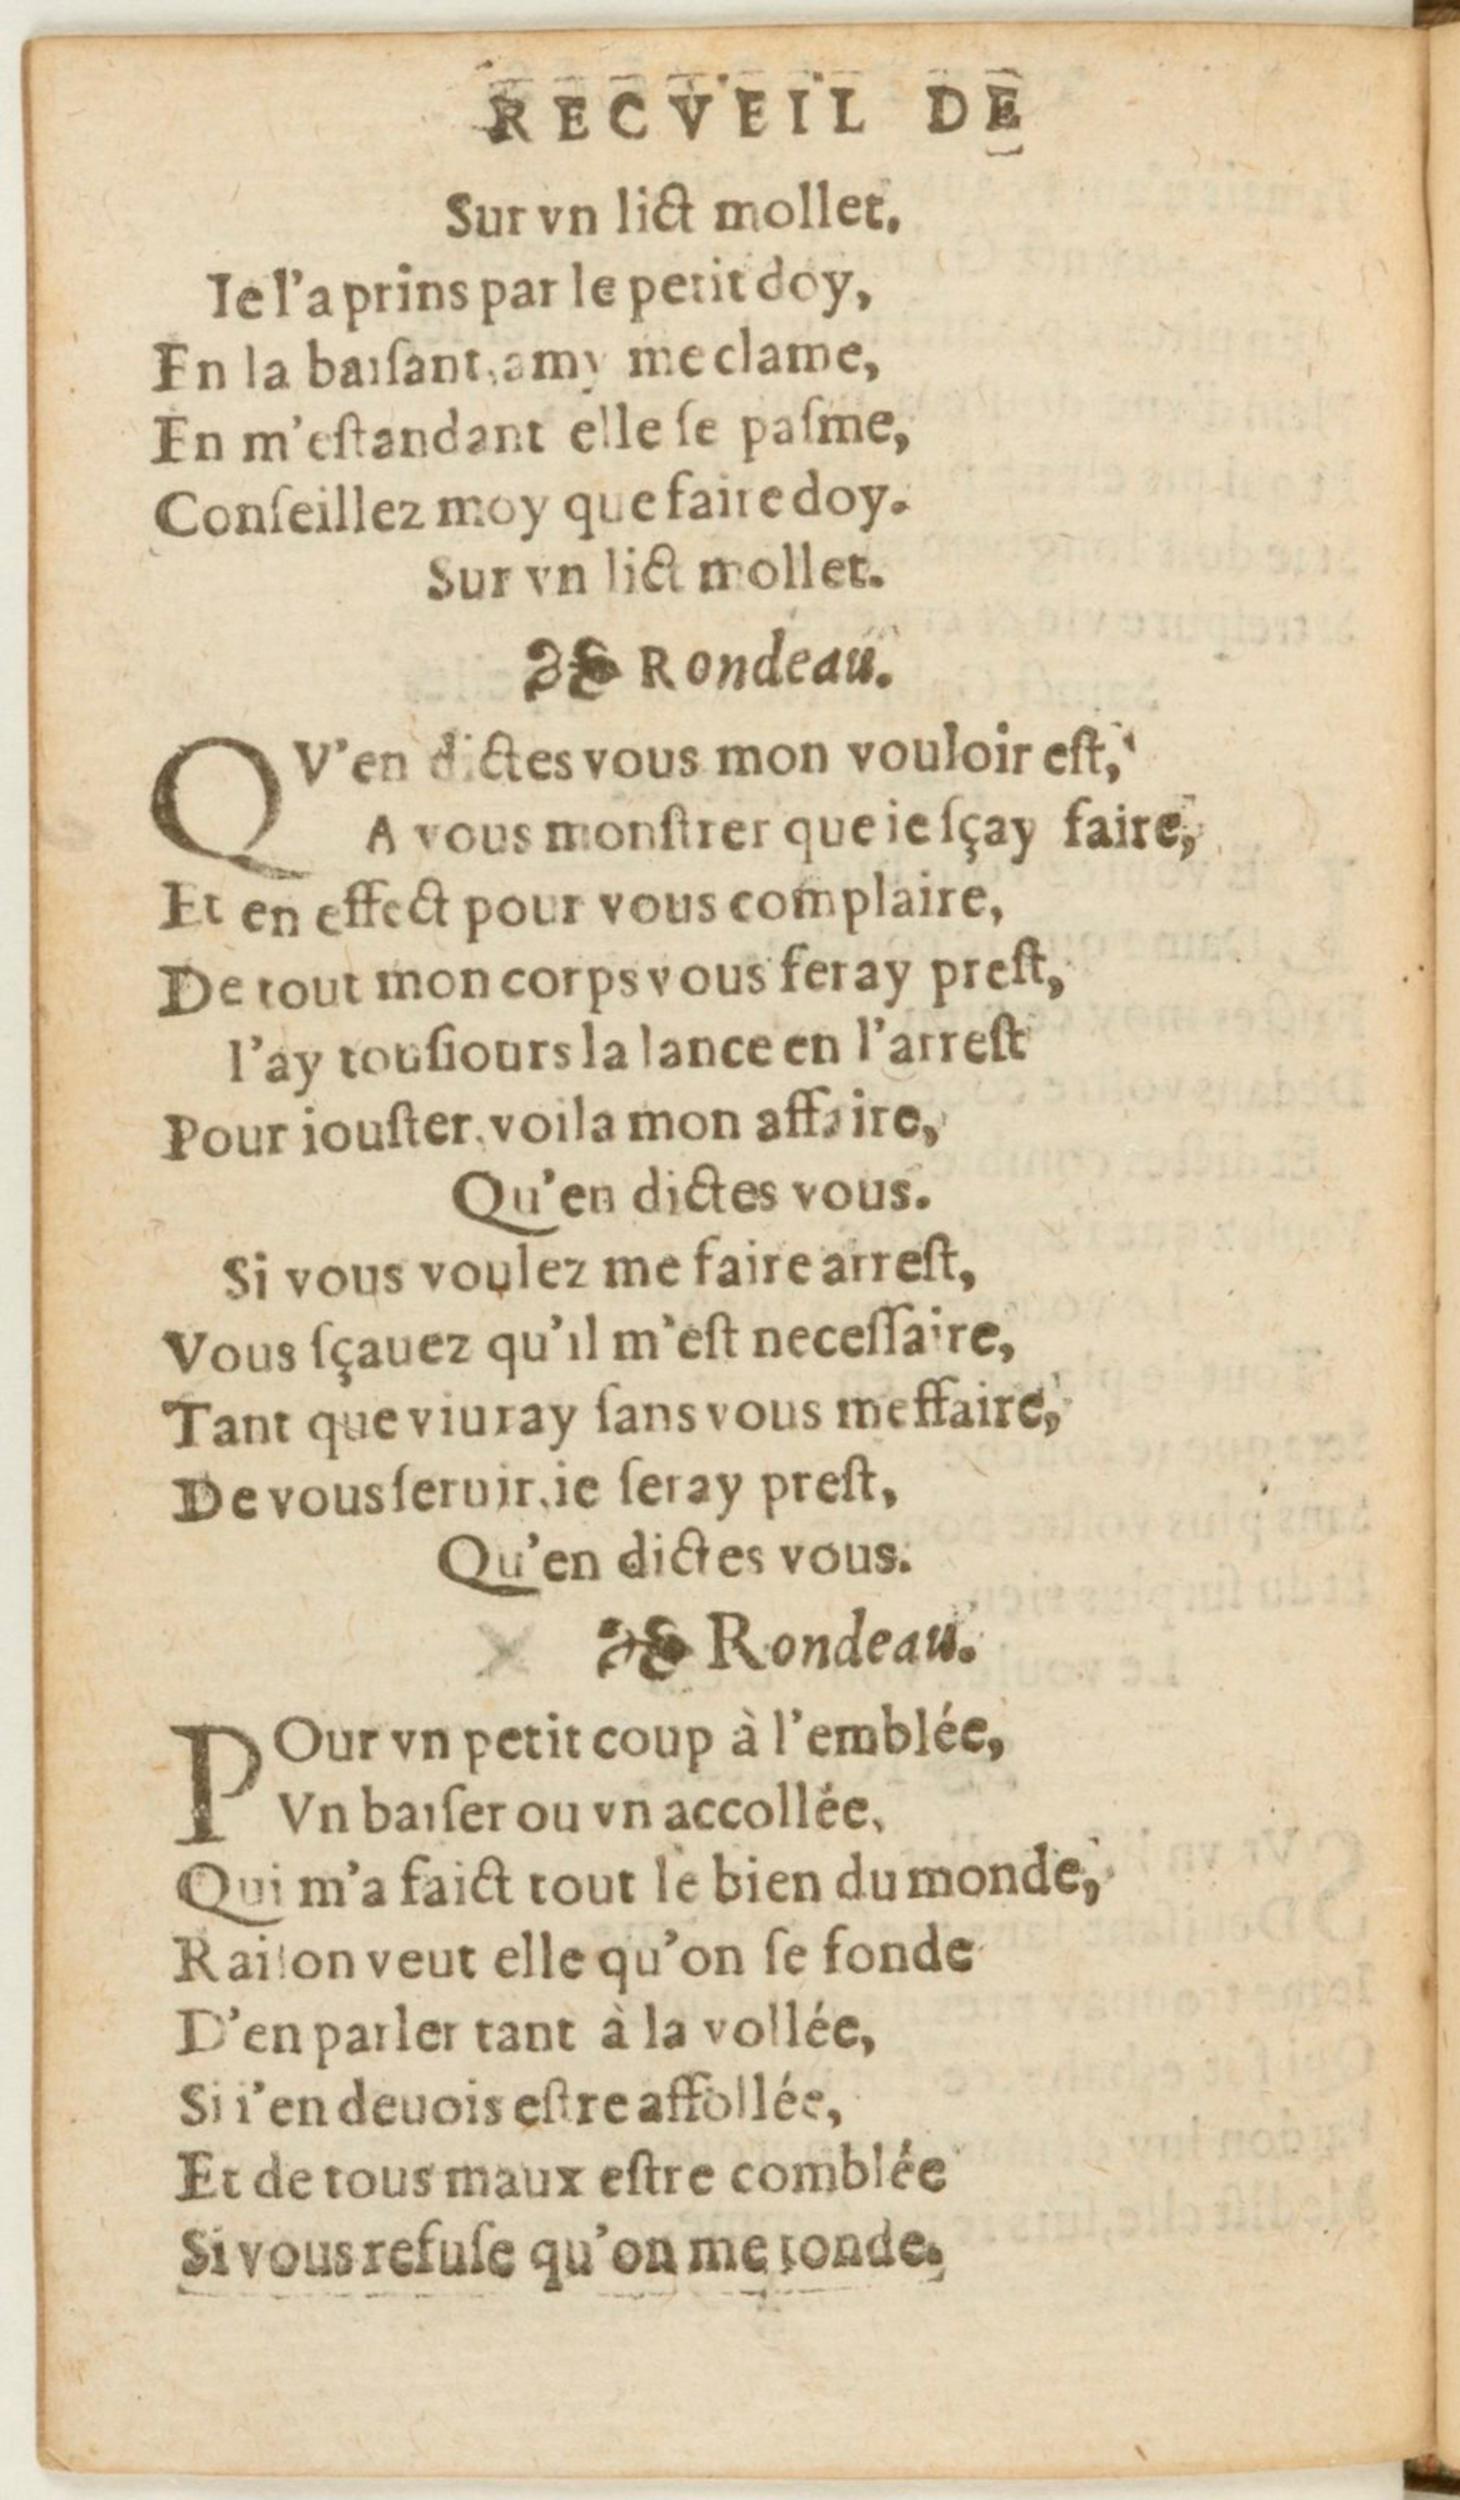 RECVEIL DE
Sur vn lict mollet.
Ie l'a prins par le petit doy,
En la baiſant, amy me clame,
En m'eſtandant elle ſe paſme,
Conſeillez moy que faire doy.
Sur vn lict mollet.
Rondeau.
QV'en dictes vous mon vouloir eſt,
A vous monſtrer que ie ſçay faire,
Et en effect pour vous complaire,
De tout mon corps vous feray preſt,
I'ay touſiours la lance en l'arreſt
Pour iouſter, voila mon affaire,
Qu'en dictes vous.
Si vous voulez me faire arreſt,
Vous ſçauez qu'il m'eſt neceſſaire,
Tant que viuray ſans vous meffaire,
De vous ſeruir, ie ſeray preſt,
Qu'en dictes vous.
Rondeau.
POur vn petit coup à l'emblée,
Vn baiſer ou vn accollée,
Qui m'a faict tout le bien du monde,
Raiſon veut elle qu'on ſe fonde
D'en parler tant à la vollée,
Si i'en deuois eſtre affollée,
Et de tous maux eſtre comblée
Si vous refuſe qu'on me tonde.